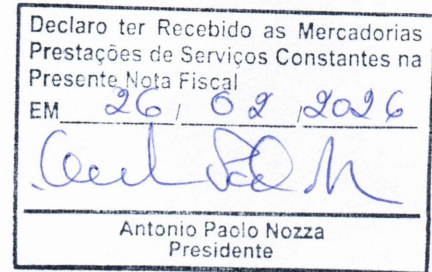 Declaro ter Recebido as Mercadorias
Prestações de Serviços Constantes na
Presente Nota Fiscal
EM 26 / 02 / 2026
Antonio Paolo Nozza
Presidente